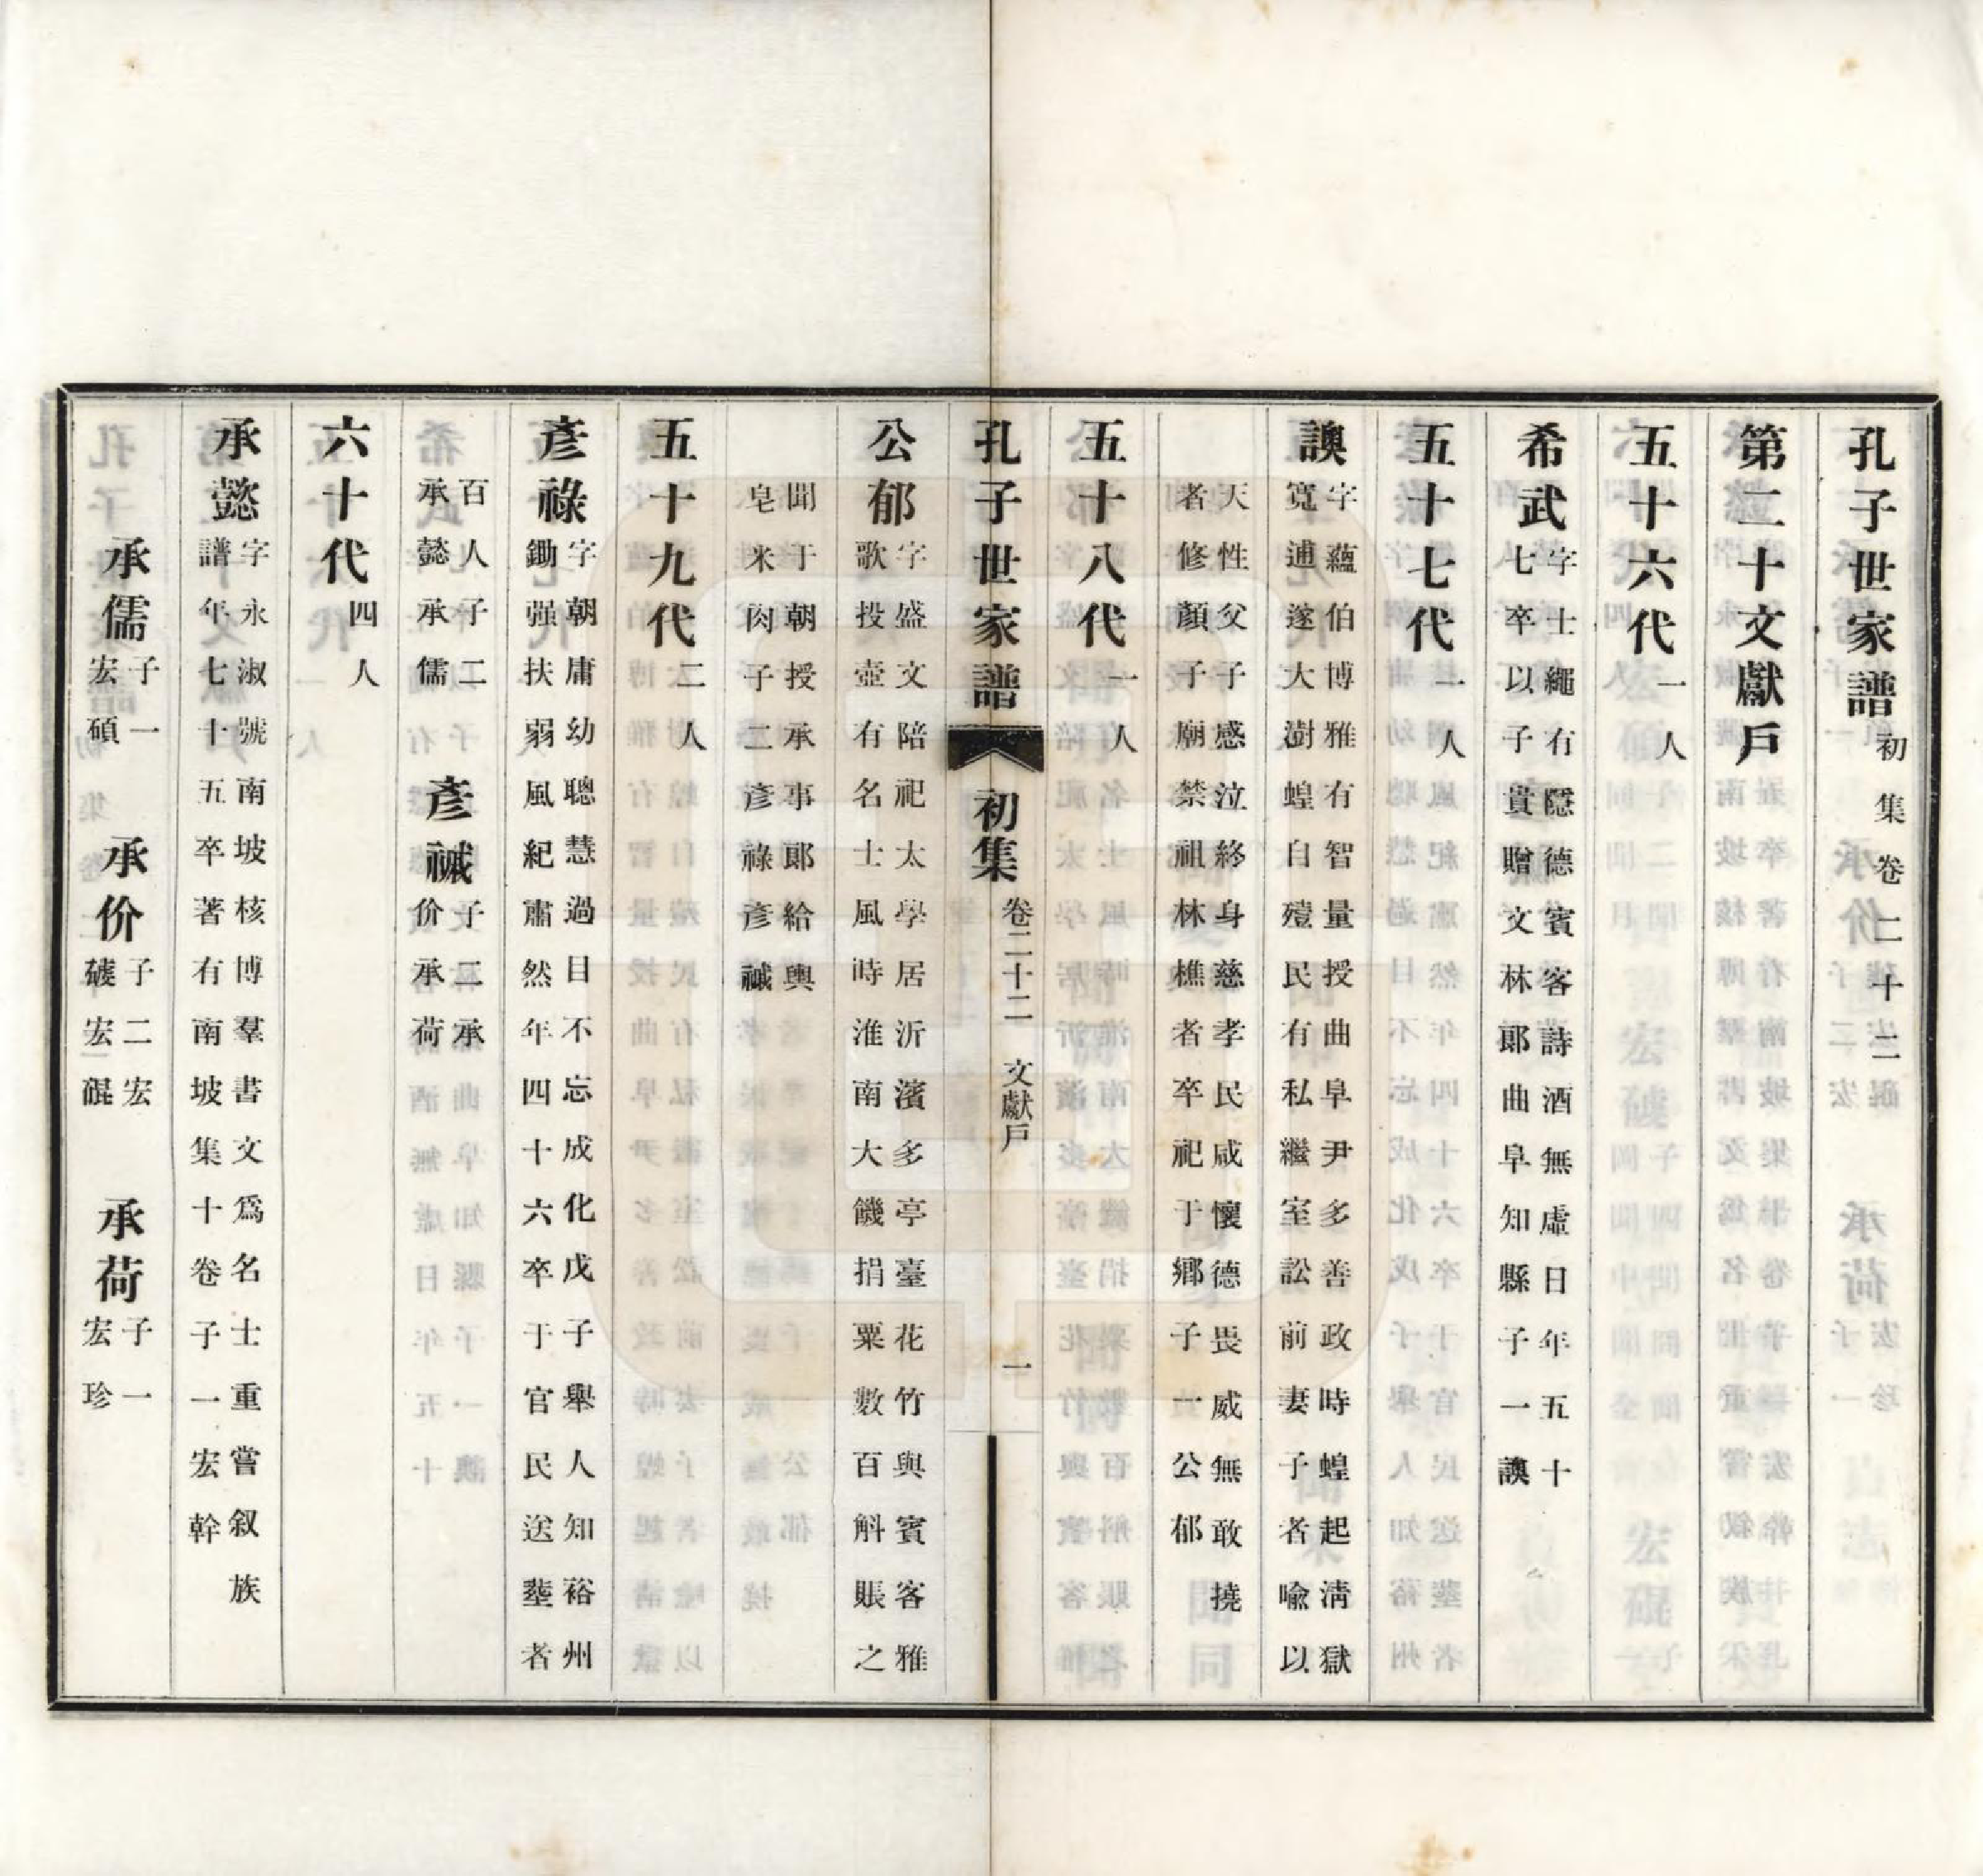 孔子世家譜初集卷二十二
第二十文獻戶
五十六代一人
希武字士繩有隱德賓客詩酒無虛日年五十
七卒以子貴贈文林郞曲阜知縣子一䜑
五十七代一人
䜑字蘊伯博雅有智量授曲阜尹多善政時蝗起淸獄
寬逋遂大澍蝗自殪民有私繼室訟前妻子者喩以
天性父子感泣終身慈孝民咸懷德畏威無敢撓
者修顏子廟禁祖林樵者卒祀于鄕子一公郁
五十八代一人
孔子世家譜 初集 卷二十二 文獻戶 一
公郁字盛文陪祀太學居沂濱多亭臺花竹與賓客雅
歌投壺有名士風時淮南大饑捐粟數百斛賬之
聞于朝授承事郞給輿
皂米肉子二彥祿彥祴
五十九代二人
彥祿字朝庸幼聰慧過目不忘成化戊子舉人知裕州
鋤强扶弱風紀肅然年四十六卒于官民送塟者
百人子二
承懿承儒
彥祴子二承
价承荷
六十代四人
承懿字永淑號南坡核博羣書文爲名士重嘗叙族
譜年七十五卒著有南坡集十卷子一宏幹
承儒子一
宏碩
承价子二宏
礈宏硍
承荷子一
宏珍